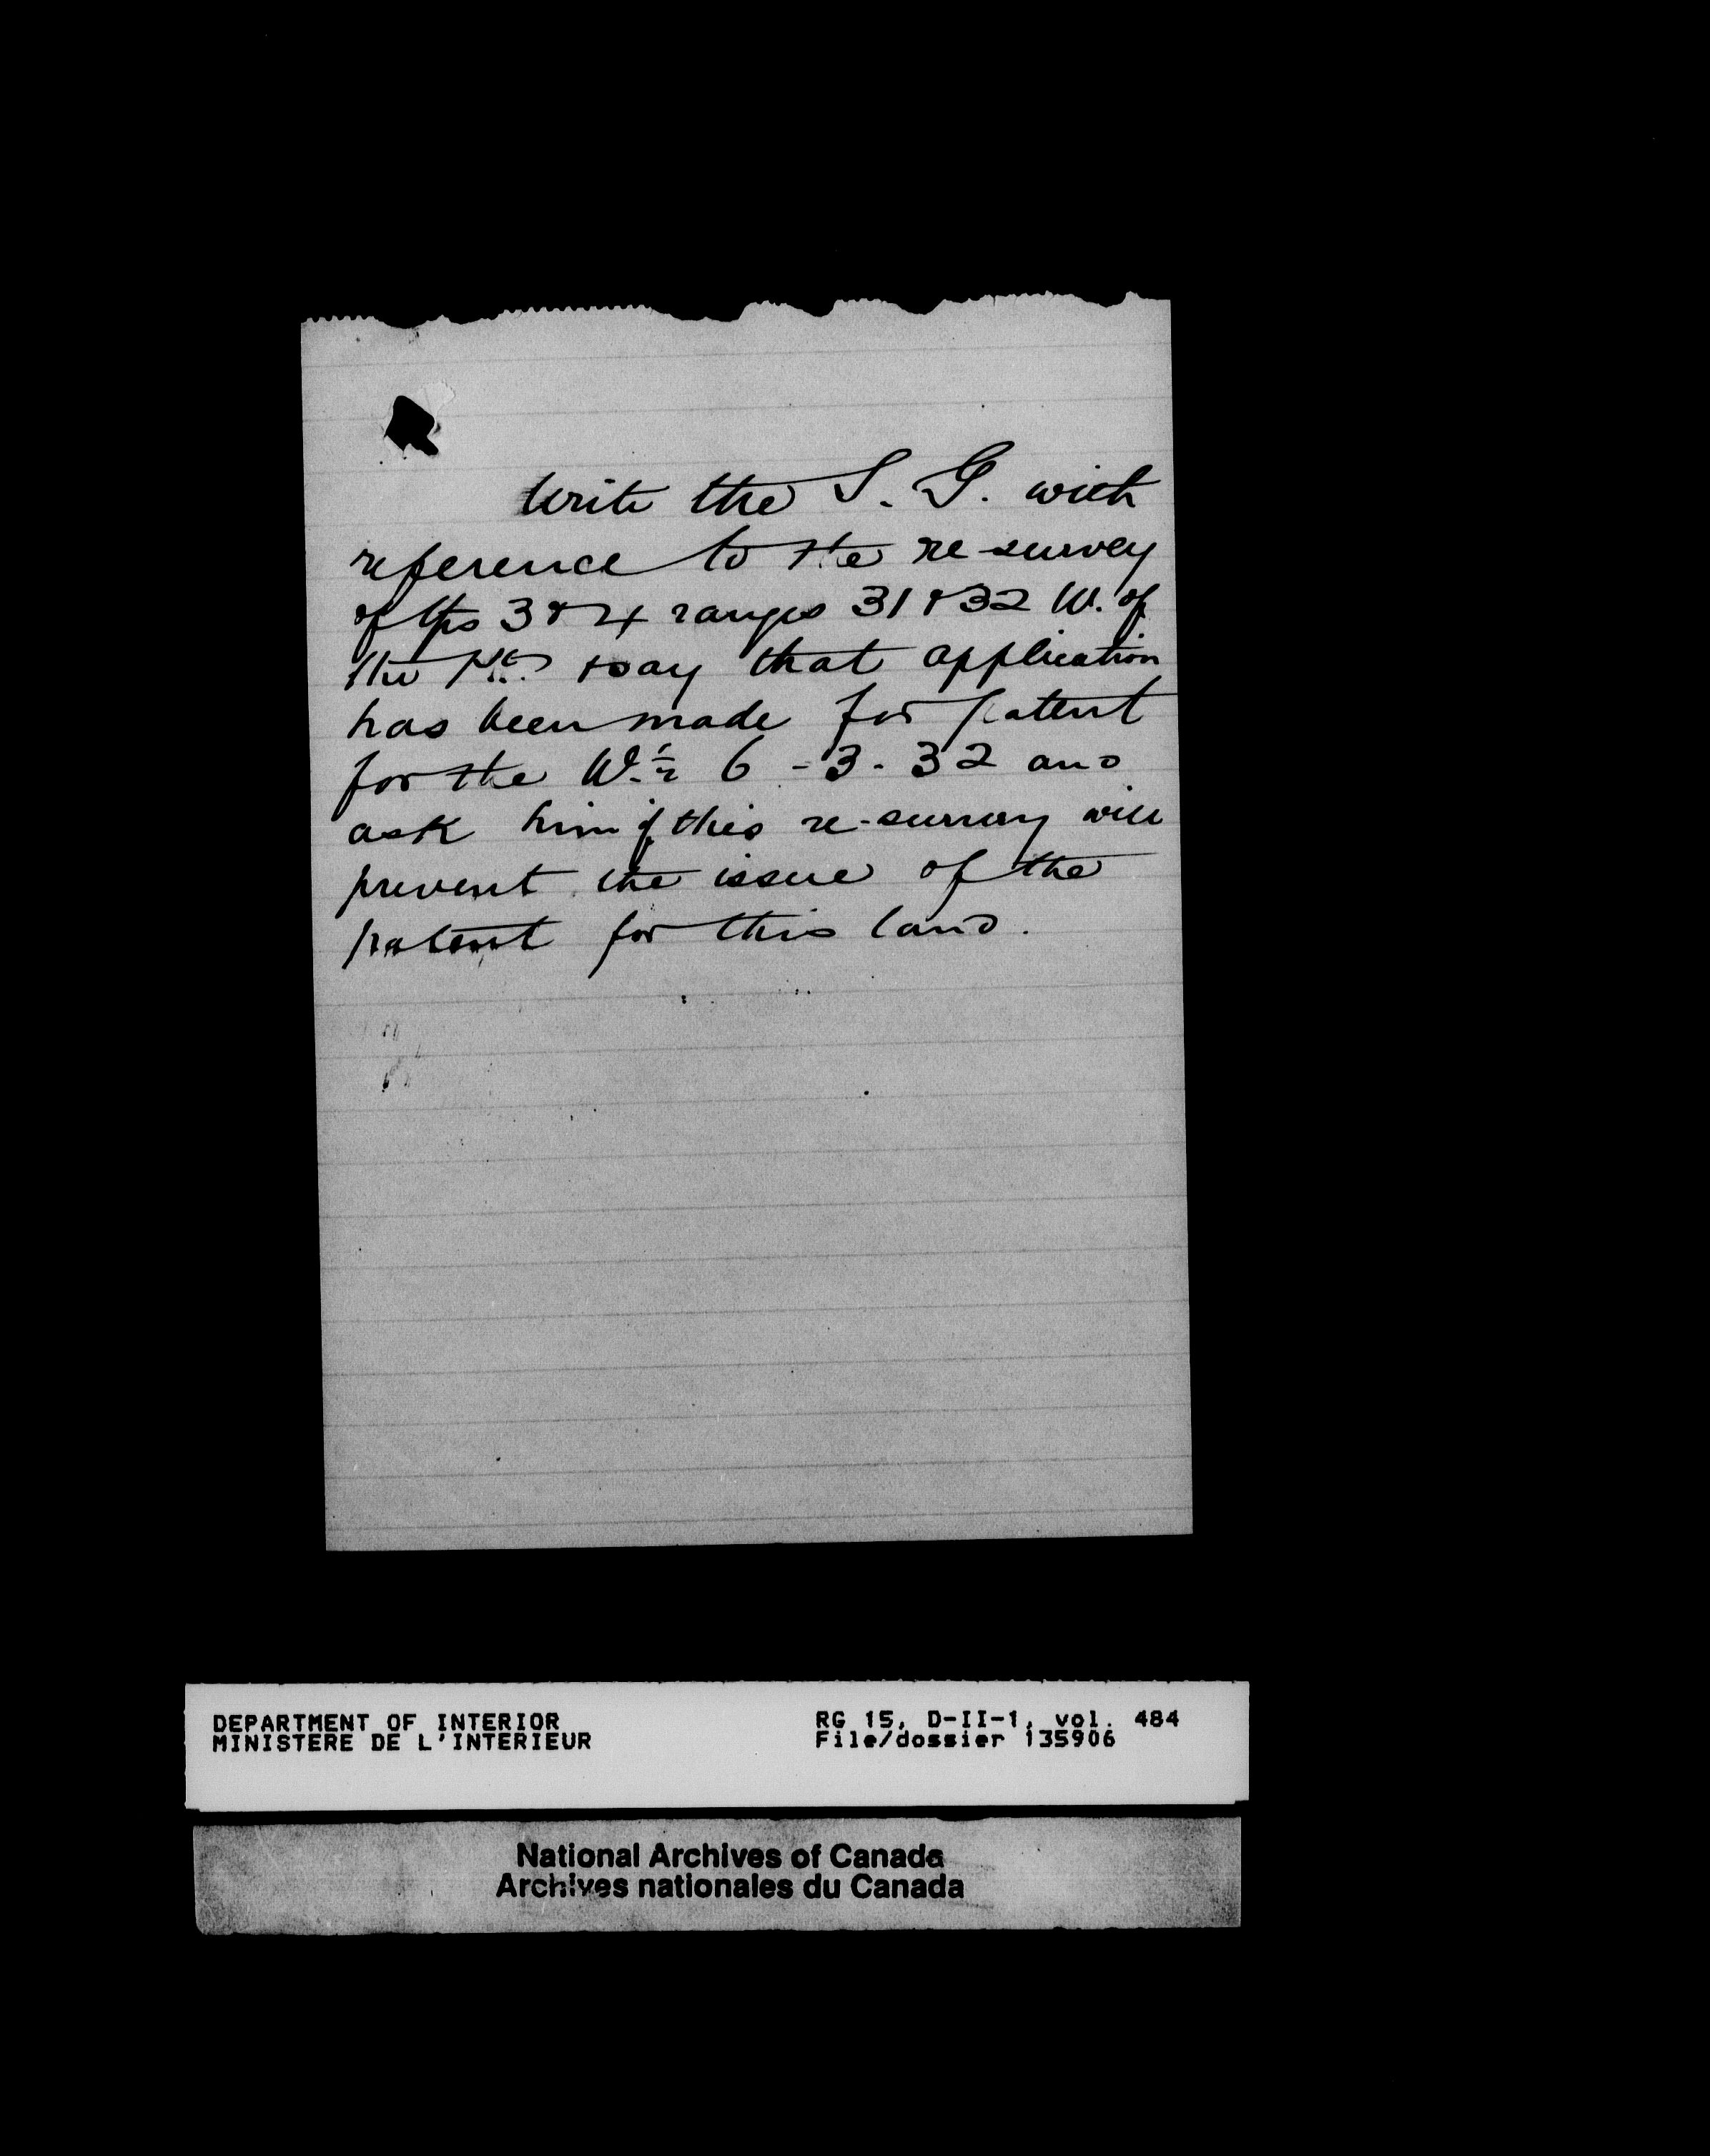 Write the S. G. with
reference to the re-survey
of tps 3 & 4 ranges 31 & 32 W. of
the Pr. & say that application
has been made for patent
for the W. ½ 6 - 3 - 32 and
ask him if this re-survey will
prevent the issue of the
patent for this land.
DEPARTMENT OF INTERIOR
MINISTERE DE L'INTERIEUR
RG 15, D-II-1, vol. 484
File/dossier 135906
National Archives of Canada
Archives nationales du Canada